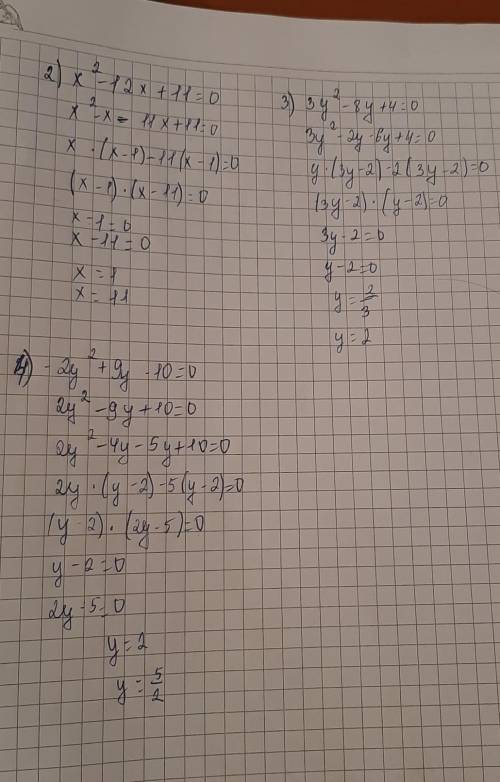 2) x² - 12x + 11 = 0
x² - x = 11x + 11 = 0
x · (x - 1) - 11(x - 1) = 0
(x - 1) · (x - 11) = 0
x - 1 = 0
x - 11 = 0
x = 1
x = 11
3) 3y² - 8y + 4 = 0
3y² - 2y - 6y + 4 = 0
y · (3y - 2) - 2(3y - 2) = 0
(3y - 2) · (y - 2) = 0
3y - 2 = 0
y - 2 = 0
y = 2/3
y = 2
4) -2y² + 9y - 10 = 0
2y² - 9y + 10 = 0
2y² - 4y - 5y + 10 = 0
2y · (y - 2) - 5(y - 2) = 0
(y - 2) · (2y - 5) = 0
y - 2 = 0
2y - 5 = 0
y = 2
y = 5/2